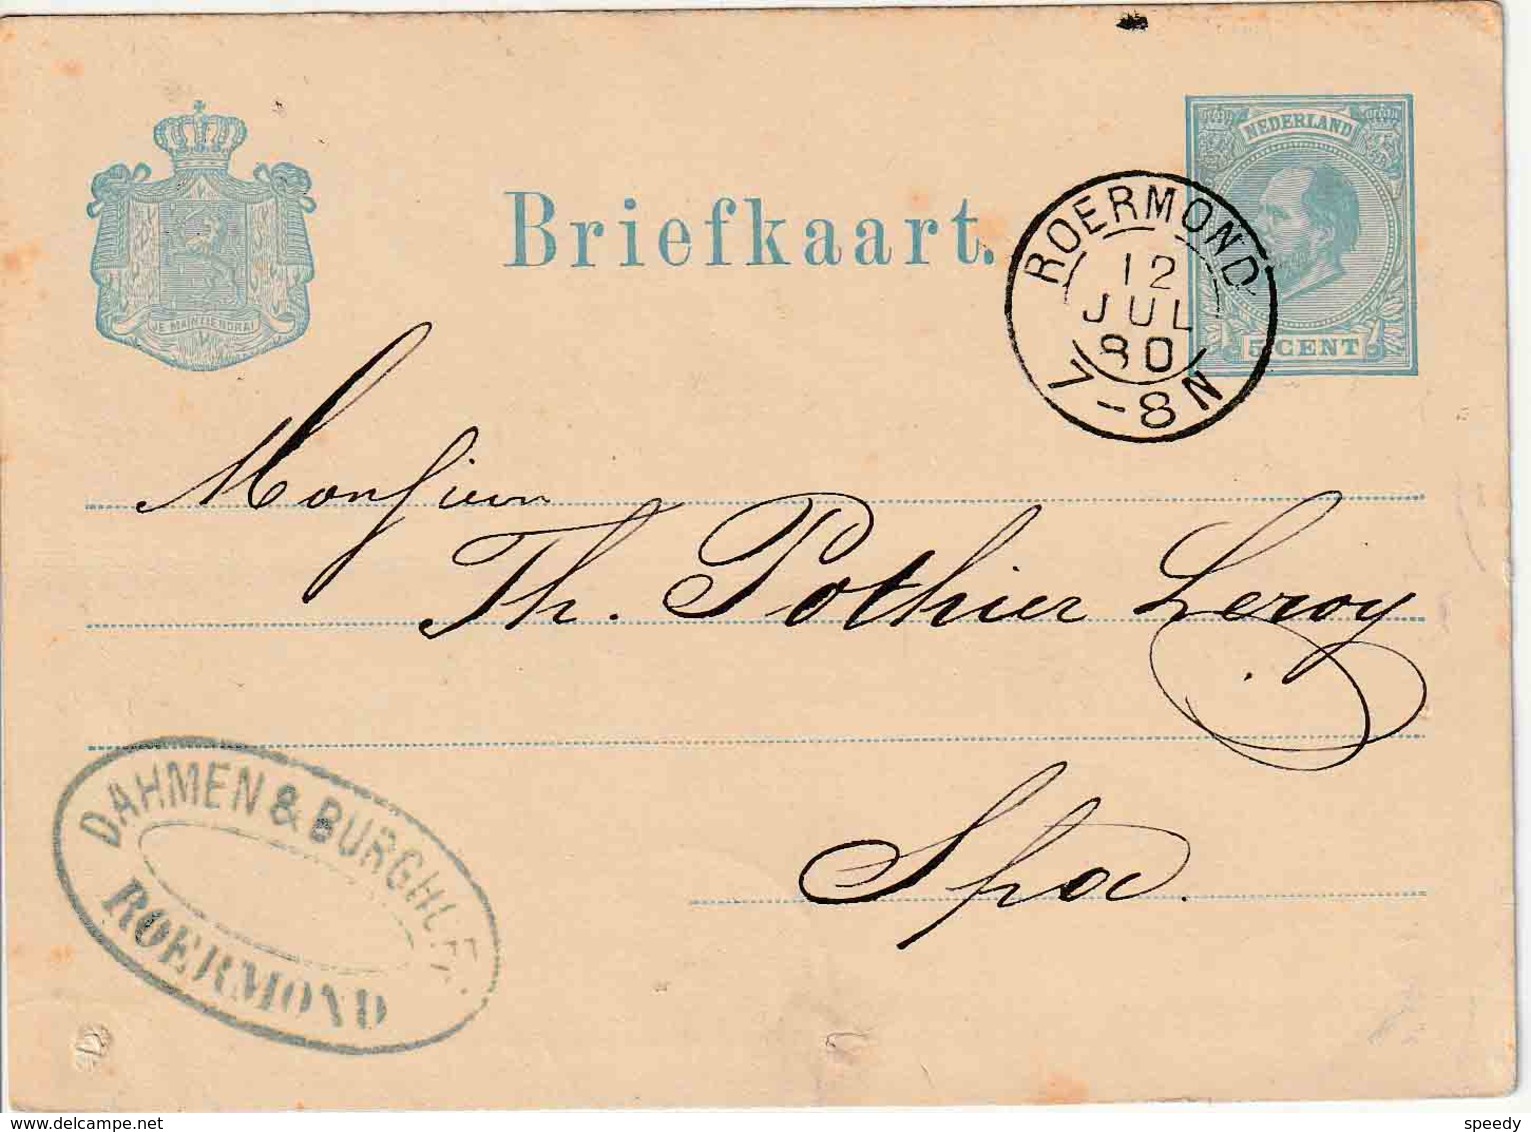 NEDERLAND
Briefkaart.
ROERMOND
12
JUL
80
7-8N
5 CENT
JE MAINTIENDRAI
Monsieur
Th. Pothier Leroy
Spa.
DAHMEN & BURGHOFF
ROERMOND
www.delcampe.net
speedy